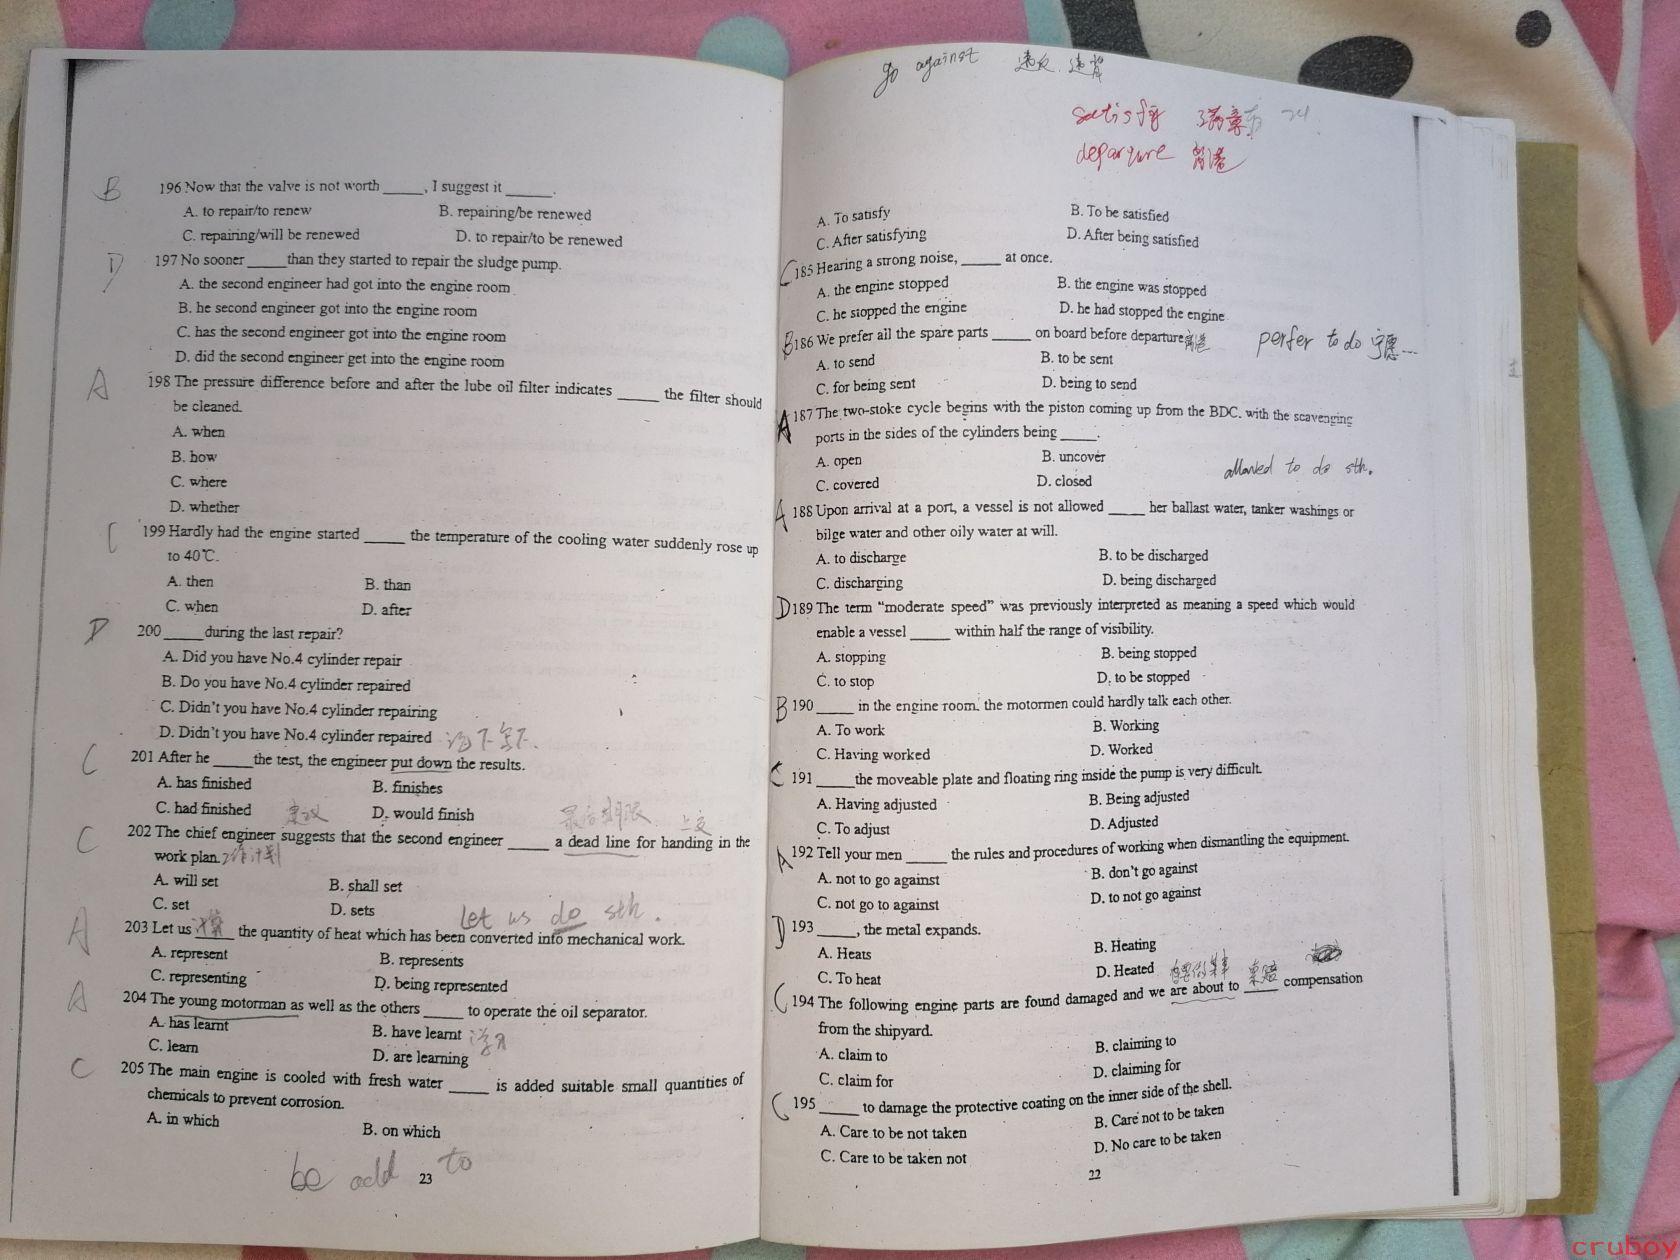 B 196 Now that the valve is not worth _____, I suggest it _____.
A. to repair/to renew B. repairing/be renewed
C. repairing/will be renewed D. to repair/to be renewed
D 197 No sooner _____than they started to repair the sludge pump.
A. the second engineer had got into the engine room
B. he second engineer got into the engine room
C. has the second engineer got into the engine room
D. did the second engineer get into the engine room
A 198 The pressure difference before and after the lube oil filter indicates _____ the filter should
be cleaned.
A. when
B. how
C. where
D. whether
C 199 Hardly had the engine started _____ the temperature of the cooling water suddenly rose up
to 40℃.
A. then B. than
C. when D. after
D 200 _____during the last repair?
A. Did you have No.4 cylinder repair
B. Do you have No.4 cylinder repaired
C. Didn't you have No.4 cylinder repairing
D. Didn't you have No.4 cylinder repaired
C 201 After he _____the test, the engineer put down the results.
A. has finished B. finishes
C. had finished D. would finish
建议 最后期限 上交
C 202 The chief engineer suggests that the second engineer _____ a dead line for handing in the
work plan. 工作计划
A. will set B. shall set
C. set D. sets
Let us do sth.
A 203 Let us _____ the quantity of heat which has been converted into mechanical work.
计算
A. represent B. represents
C. representing D. being represented
A 204 The young motorman as well as the others _____ to operate the oil separator.
A. has learnt B. have learnt 学习
C. learn D. are learning
C 205 The main engine is cooled with fresh water _____ is added suitable small quantities of
chemicals to prevent corrosion.
A. in which B. on which
be add to
23
go against 违反. 违背
satisfy
departure 离港
A. To satisfy B. To be satisfied
C. After satisfying D. After being satisfied
C 185 Hearing a strong noise, _____ at once.
A. the engine stopped B. the engine was stopped
C. he stopped the engine D. he had stopped the engine
B 186 We prefer all the spare parts _____ on board before departure 离港 perfer to do 宁愿...
A. to send B. to be sent
C. for being sent D. being to send
A 187 The two-stoke cycle begins with the piston coming up from the BDC. with the scavenging
ports in the sides of the cylinders being _____.
A. open B. uncover
C. covered D. closed
allowed to do sth.
A 188 Upon arrival at a port, a vessel is not allowed _____ her ballast water, tanker washings or
bilge water and other oily water at will.
A. to discharge B. to be discharged
C. discharging D. being discharged
D 189 The term “moderate speed” was previously interpreted as meaning a speed which would
enable a vessel _____ within half the range of visibility.
A. stopping B. being stopped
C. to stop D. to be stopped
B 190 _____ in the engine room. the motormen could hardly talk each other.
A. To work B. Working
C. Having worked D. Worked
C 191 _____the moveable plate and floating ring inside the pump is very difficult.
A. Having adjusted B. Being adjusted
C. To adjust D. Adjusted
A 192 Tell your men _____ the rules and procedures of working when dismantling the equipment.
A. not to go against B. don't go against
C. not go to against D. to not go against
D 193 _____, the metal expands.
A. Heats B. Heating
C. To heat D. Heated
索赔
C 194 The following engine parts are found damaged and we are about to _____ compensation
from the shipyard.
A. claim to B. claiming to
C. claim for D. claiming for
C 195 _____ to damage the protective coating on the inner side of the shell.
A. Care to be not taken B. Care not to be taken
C. Care to be taken not D. No care to be taken
22
cruboy